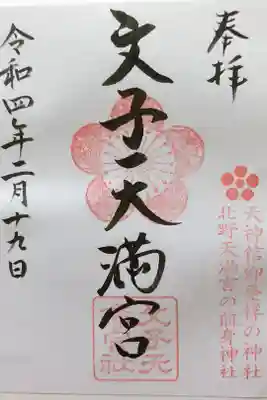 奉拝
天神信仰発祥の神社
北野天満宮の前身神社
文子天満宮
令和四年二月十九日